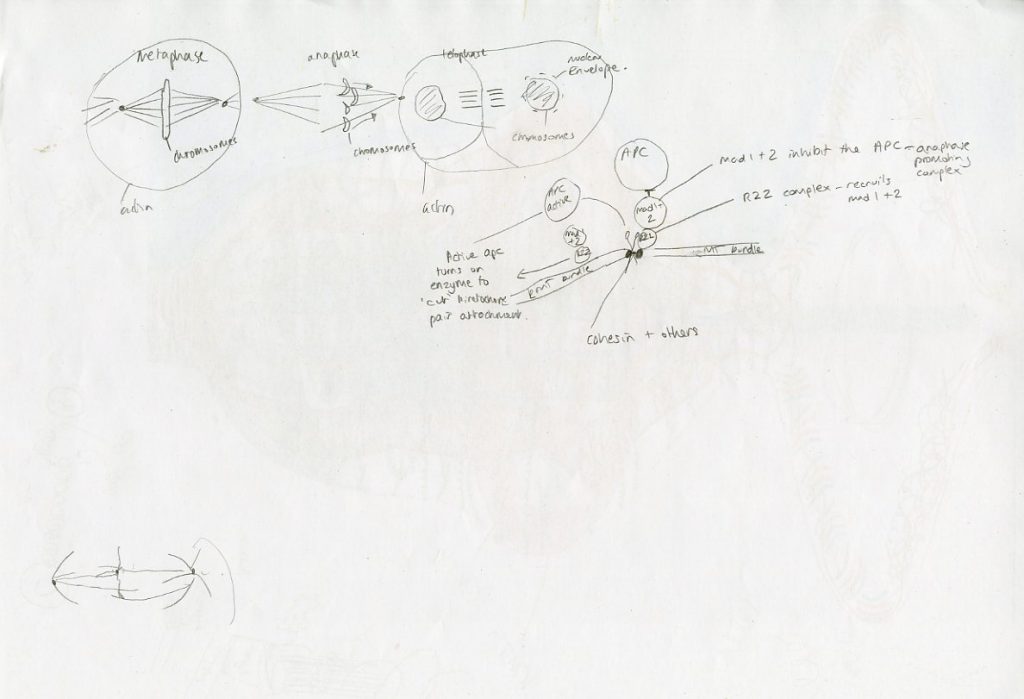 metaphase
anaphase
telophase
nuclear
Envelope.
chromosomes
chromosomes
chromosomes
actin
actin
APC
mad 1+
2
mad 1+2 inhibit the APC - anaphase
promoting
complex
RZZ complex - recruits
mad 1+2
RZZ
APC
active
mad 1
+2
RZZ
MT bundle
KMT bundle
Active apc
turns on
enzyme to
'cut' kinetochore
pair attachment.
cohesin + others